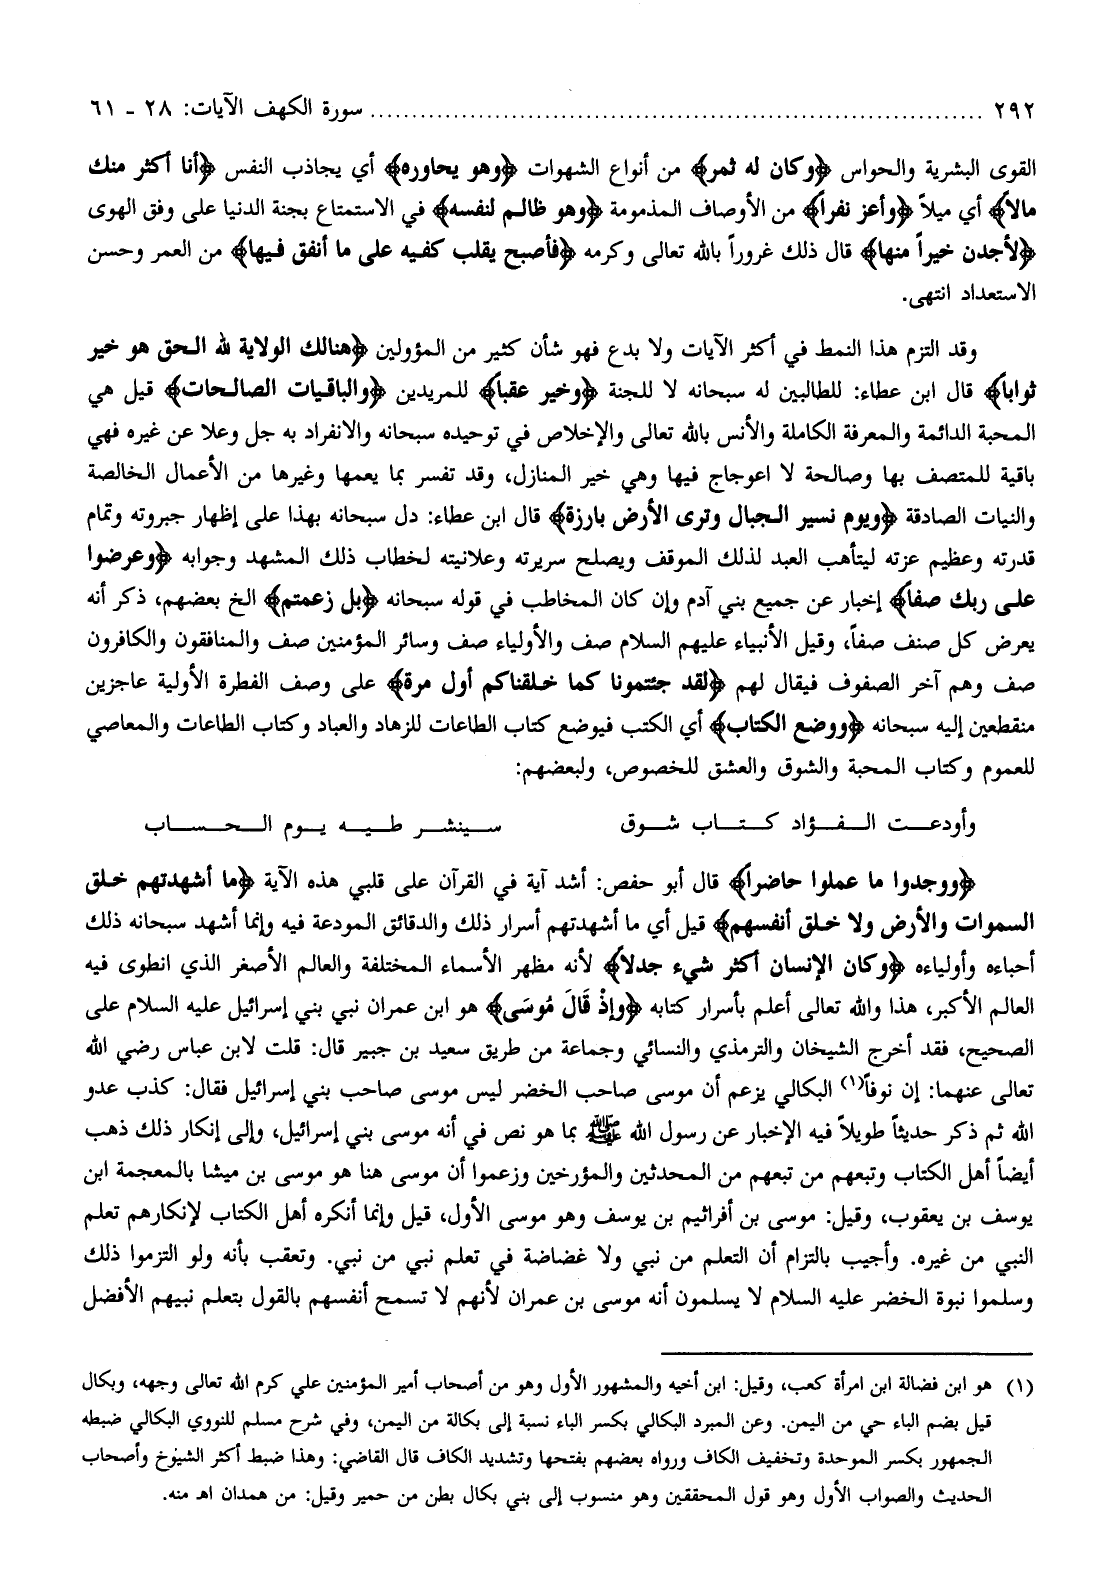 ٢٩٢ ........................................................................ سورة الكهف الآيات: ٢٨ - ٦١
القوى البشرية والحواس ﴿وكان له ثمر﴾ من أنواع الشهوات ﴿وهو يحاوره﴾ أي يجاذب النفس ﴿أنا أكثر منك
مالا﴾ أي ميلاً ﴿وأعز نفراً﴾ من الأوصاف المذمومة ﴿وهو ظالم لنفسه﴾ في الاستمتاع بجنة الدنيا على وفق الهوى
﴿لأجدن خيراً منها﴾ قال ذلك غروراً بالله تعالى وكرمه ﴿فأصبح يقلب كفيه على ما أنفق فيها﴾ من العمر وحسن
الاستعداد انتهى.
وقد التزم هذا النمط في أكثر الآيات ولا بدع فهو شأن كثير من المؤولين ﴿هنالك الولاية لله الحق هو خير
ثواباً﴾ قال ابن عطاء: للطالبين له سبحانه لا للجنة ﴿وخير عقباً﴾ للمريدين ﴿والباقيات الصالحات﴾ قيل هي
المحبة الدائمة والمعرفة الكاملة والأنس بالله تعالى والإخلاص في توحيده سبحانه والانفراد به جل وعلا عن غيره فهي
باقية للمتصف بها وصالحة لا اعوجاج فيها وهي خير المنازل، وقد تفسر بما يعمها وغيرها من الأعمال الخالصة
والنيات الصادقة ﴿ويوم نسير الجبال وترى الأرض بارزة﴾ قال ابن عطاء: دل سبحانه بهذا على إظهار جبروته وتمام
قدرته وعظيم عزته ليتأهب العبد لذلك الموقف ويصلح سريرته وعلانيته لخطاب ذلك المشهد وجوابه ﴿وعرضوا
على ربك صفاً﴾ إخبار عن جميع بني آدم وإن كان المخاطب في قوله سبحانه ﴿بل زعمتم﴾ الخ بعضهم، ذكر أنه
يعرض كل صنف صفاً، وقيل الأنبياء عليهم السلام صف والأولياء صف وسائر المؤمنين صف والمنافقون والكافرون
صف وهم آخر الصفوف فيقال لهم ﴿لقد جئتمونا كما خلقناكم أول مرة﴾ على وصف الفطرة الأولية عاجزين
منقطعين إليه سبحانه ﴿ووضع الكتاب﴾ أي الكتب فيوضع كتاب الطاعات للزهاد والعباد وكتاب الطاعات والمعاصي
للعموم وكتاب المحبة والشوق والعشق للخصوص، ولبعضهم:
وأودعت الفؤاد كتاب شوق سينشر طيه يوم الحساب
﴿ووجدوا ما عملوا حاضرا﴾ قال أبو حفص: أشد آية في القرآن على قلبي هذه الآية ﴿ما أشهدتهم خلق
السموات والأرض ولا خلق أنفسهم﴾ قيل أي ما أشهدتهم أسرار ذلك والدقائق المودعة فيه وإنما أشهد سبحانه ذلك
أحباءه وأولياءه ﴿وكان الإنسان أكثر شيء جدلا﴾ لأنه مظهر الأسماء المختلفة والعالم الأصغر الذي انطوى فيه
العالم الأكبر، هذا والله تعالى أعلم بأسرار كتابه ﴿وإذْ قَالَ مُوسَى﴾ هو ابن عمران نبي بني إسرائيل عليه السلام على
الصحيح، فقد أخرج الشيخان والترمذي والنسائي وجماعة من طريق سعيد بن جبير قال: قلت لابن عباس رضي الله
تعالى عنهما: إن نوفاً(١) البكالي يزعم أن موسى صاحب الخضر ليس موسى صاحب بني إسرائيل فقال: كذب عدو
الله ثم ذكر حديثاً طويلاً فيه الإخبار عن رسول الله ﷺ بما هو نص في أنه موسى بني إسرائيل، وإلى إنكار ذلك ذهب
أيضاً أهل الكتاب وتبعهم من تبعهم من المحدثين والمؤرخين وزعموا أن موسى هنا هو موسى بن ميشا بالمعجمة ابن
يوسف بن يعقوب، وقيل: موسى بن أفراثيم بن يوسف وهو موسى الأول، قيل وإنما أنكره أهل الكتاب لإنكارهم تعلم
النبي من غيره. وأجيب بالتزام أن التعلم من نبي ولا غضاضة في تعلم نبي من نبي. وتعقب بأنه ولو التزموا ذلك
وسلموا نبوة الخضر عليه السلام لا يسلمون أنه موسى بن عمران لأنهم لا تسمح أنفسهم بالقول بتعلم نبيهم الأفضل
(١) هو ابن فضالة ابن امرأة كعب، وقيل: ابن أخيه والمشهور الأول وهو من أصحاب أمير المؤمنين علي كرم الله تعالى وجهه، وبكال
قيل بضم الباء حي من اليمن. وعن المبرد البكالي بكسر الباء نسبة إلى بكالة من اليمن، وفي شرح مسلم للنووي البكالي ضبطه
الجمهور بكسر الموحدة وتخفيف الكاف ورواه بعضهم بفتحها وتشديد الكاف قال القاضي: وهذا ضبط أكثر الشيوخ وأصحاب
الحديث والصواب الأول وهو قول المحققين وهو منسوب إلى بني بكال بطن من حمير وقيل: من همدان اهـ منه.